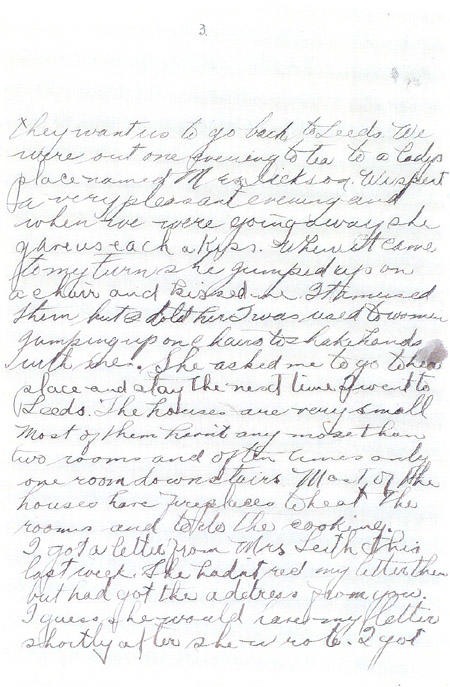 3.
they want us to go back to Leeds. We
were out one evening to tea to a lady's
place named M Dickson. We spent
a very pleasant evening and
when we were going away she
gave us each a kiss. When it came
to my turn she gumped up on
a chair and kissed me. It amused
them but I told her I was used to women
gumping up on chairs to shake hands
with me. She asked me to go to her
place and stay the next time I went to
Leeds. The houses are very small
most of them havnt any more than
two rooms and often times only
one room downstairs. Most of the
houses have fireplaces to heat the
rooms and to do the cooking.
I got a letter from Mrs Leith this
last week. She hadnt red my letter then
but had got the address from you.
I guess she would have my letter
shortly after she wrote. I got